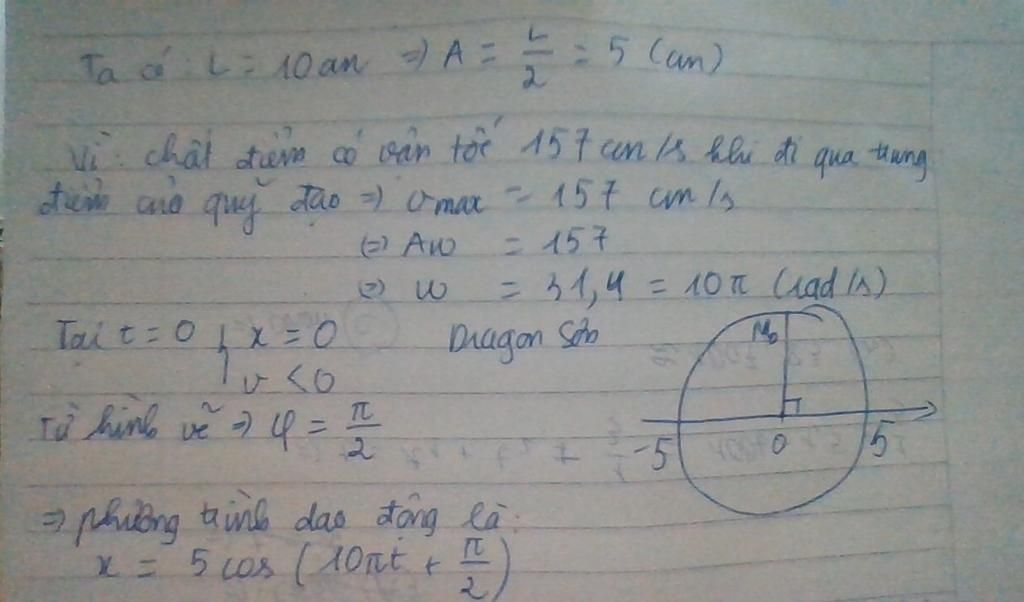 Ta có: L = 10cm => A = L/2 = 5 (cm)
Vì: chất điểm có vận tốc 157 cm/s khi đi qua trung
điểm của quỹ đạo => vmax = 157 cm/s
(=) Aω = 157
(=) ω = 31,4 = 10π (rad/s)
Tại t = 0 { x = 0
v < 0
Dragon Sơn
Từ hình vẽ => φ = π/2
M₀
-5 0 5
=> phương trình dao động là:
x = 5 cos (10πt + π/2)